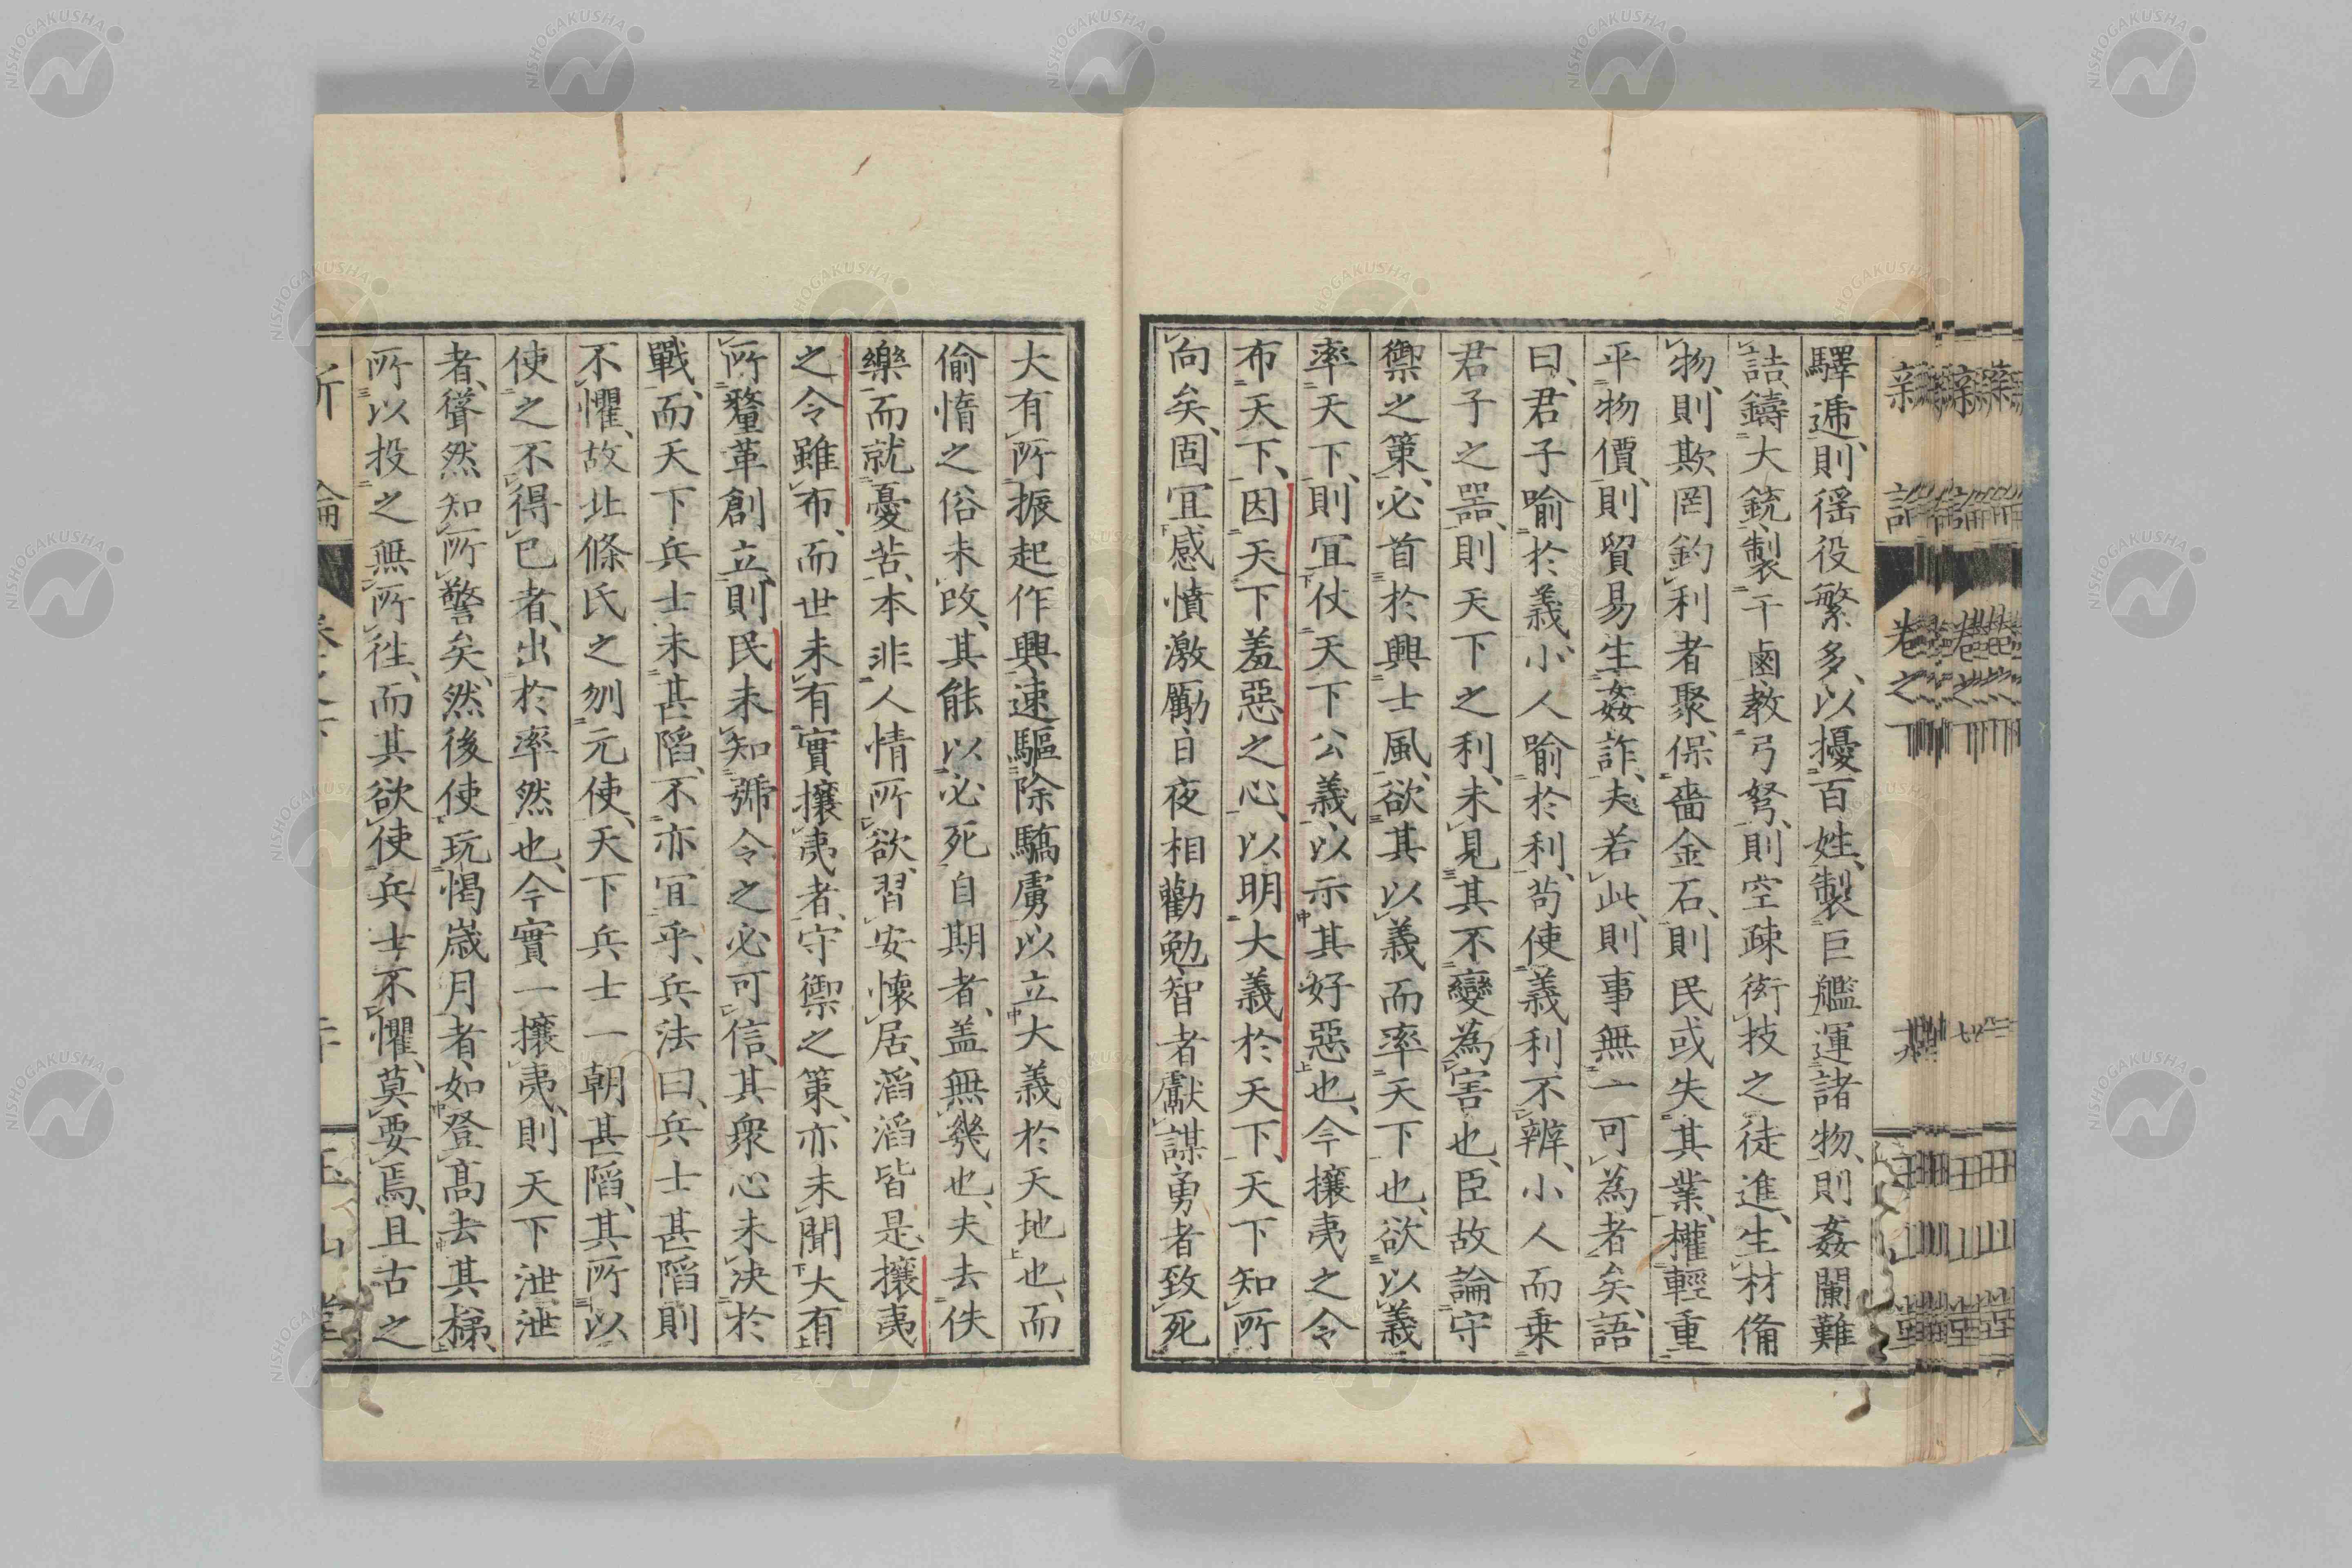 驛逓、則徭役繁多、以擾百姓、製巨艦運諸物、則姦闌難
詰、鑄大銃製干鹵教弓弩、則空疎衒技之徒進、生材備
物、則欺罔釣利者聚、保嗇金石、則民或失其業、權輕重
平物價、則貿易生姦詐、夫若此、則事無一可為者矣、語
曰、君子喻於義、小人喻於利、苟使義利不辨、小人而乗
君子之器、則天下之利、未見其不變為害也、臣故論守
禦之策、必首於興士風、欲其以義而率天下也、欲以義
率天下、則宜仗天下公義、以示其好惡也、今攘夷之令
布天下、因天下羞惡之心、以明大義於天下、天下知所
向矣、固宜感憤激勵日夜相勸勉、智者獻謀勇者致死
大有所振起作興、速驅除驕虜以立大義於天地也、而
偷惰之俗未改、其能以必死自期者、盖無幾也、夫去佚
樂而就憂苦、本非人情所欲、習安懷居、滔滔皆是、攘夷
之令雖布、而世未有實攘夷者、守禦之策、亦未聞大有
所釐革創立、則民未知號令之必可信、其衆心未決於
戰、而天下兵士未甚陷、不亦宜乎、兵法曰、兵士甚陷則
不懼、故北條氏之刎元使、天下兵士一朝甚陷、其所以
使之不得已者、出於率然也、今實一攘夷、則天下泄泄
者、聳然知所警矣、然後使玩愒歳月者、如登高去其梯、
所以投之無所往、而其欲使兵士不懼、莫要焉、且古之
新論
玉山堂
NISHOGAKUSHA